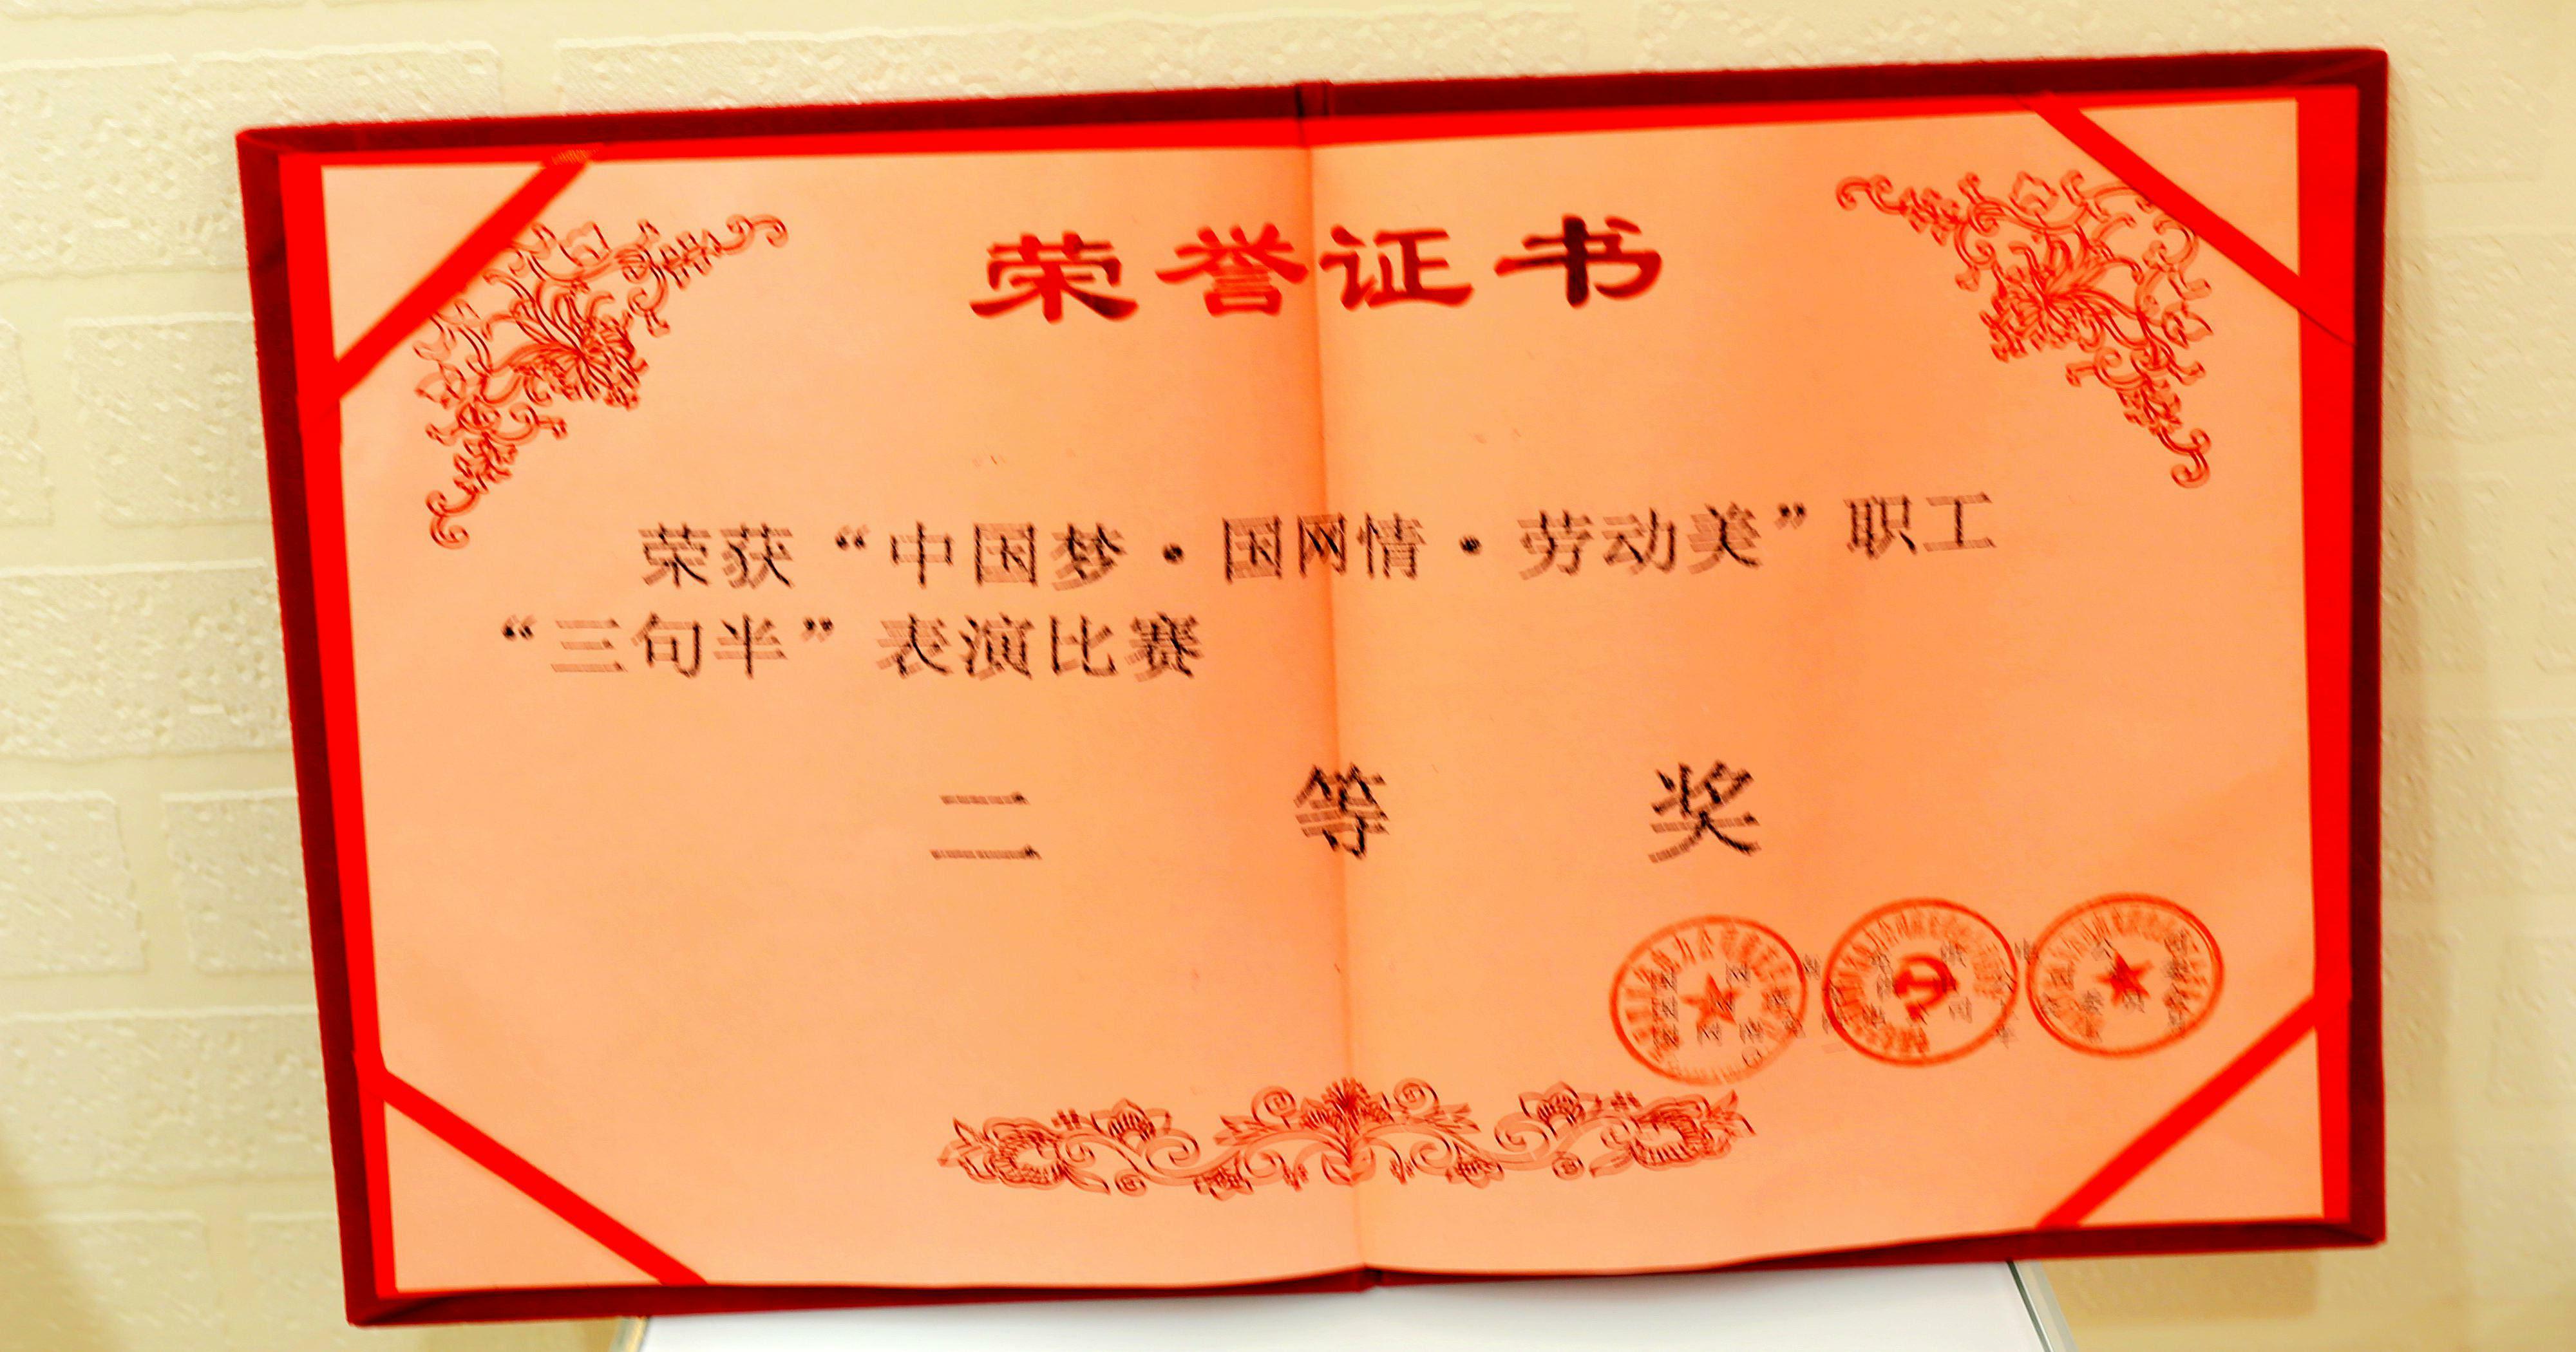 荣誉证书
荣获“中国梦·国网情·劳动美”职工
“三句半”表演比赛
二等奖